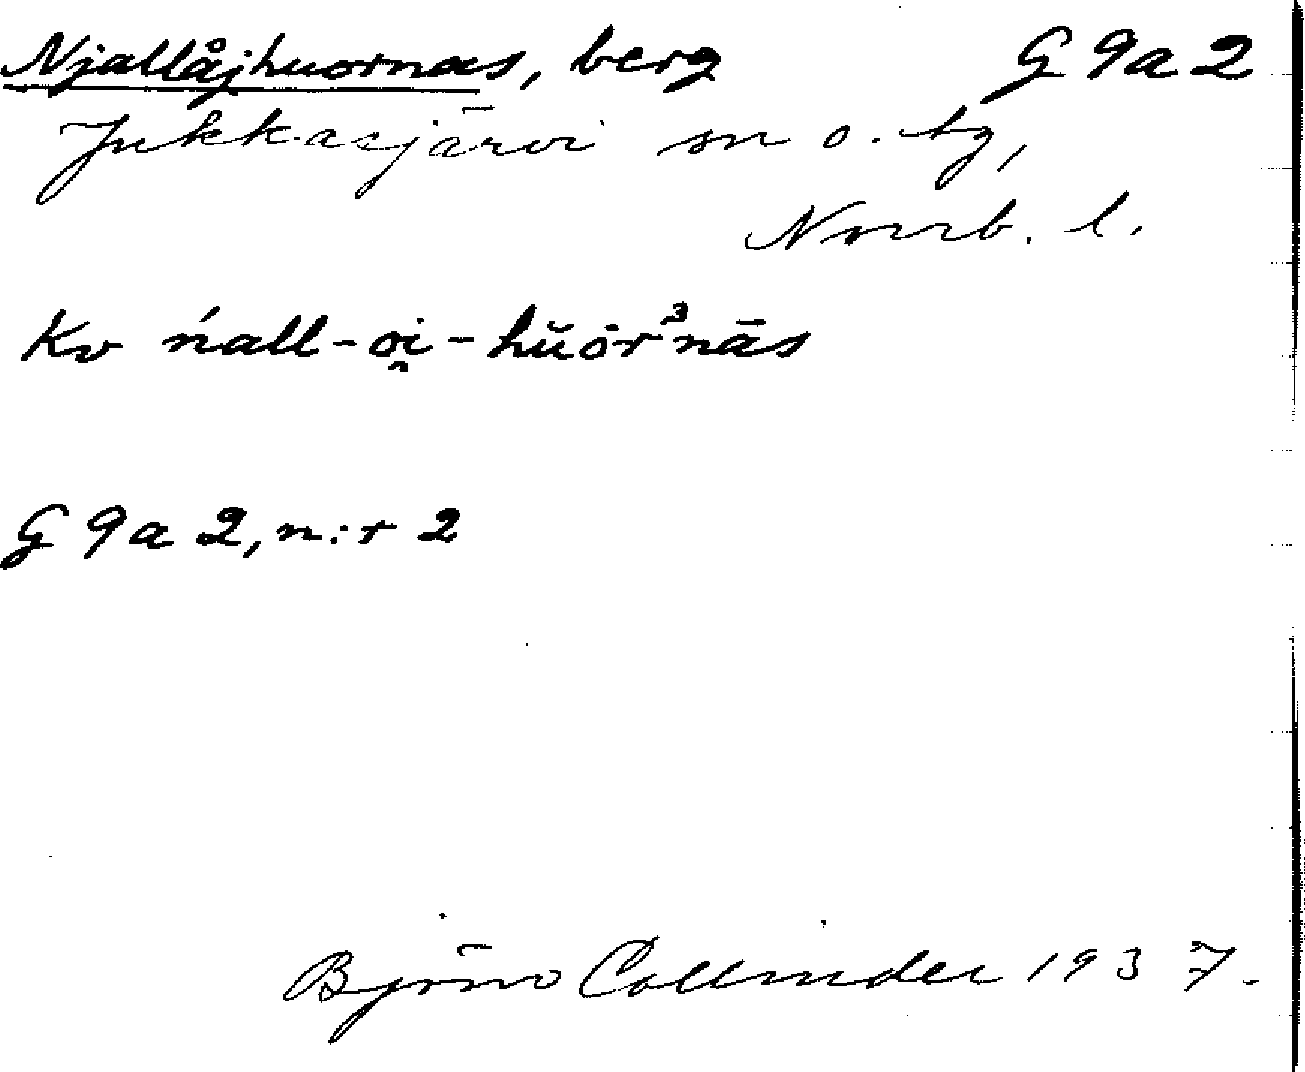 Njallåjhuornas, berg G 9a 2
Jukkasjärvi sn o. tg,
Norrb. l.
Kv ńall-oi̯-hŭōrᶾnās
G 9a 2, n:r 2
Björn Collinder 1937.